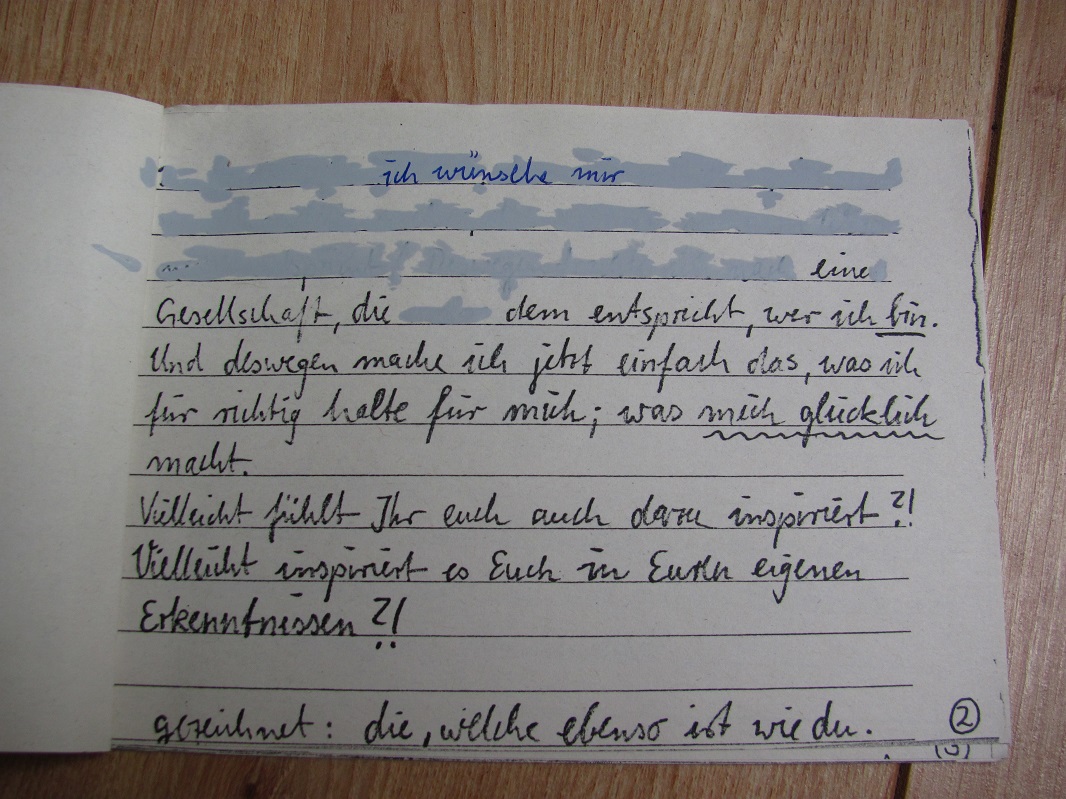 ich wünsche mir
eine
Gesellschaft, die dem entspricht, wer ich bin.
Und deswegen mache ich jetzt einfach das, was ich
für richtig halte für mich; was mich glücklich
macht.
Vielleicht fühlt Ihr euch auch dazu inspiriert?!
Vielleicht inspiriert es Euch in Euren eigenen
Erkenntnissen?!
gezeichnet: die, welche ebenso ist wie du.
2